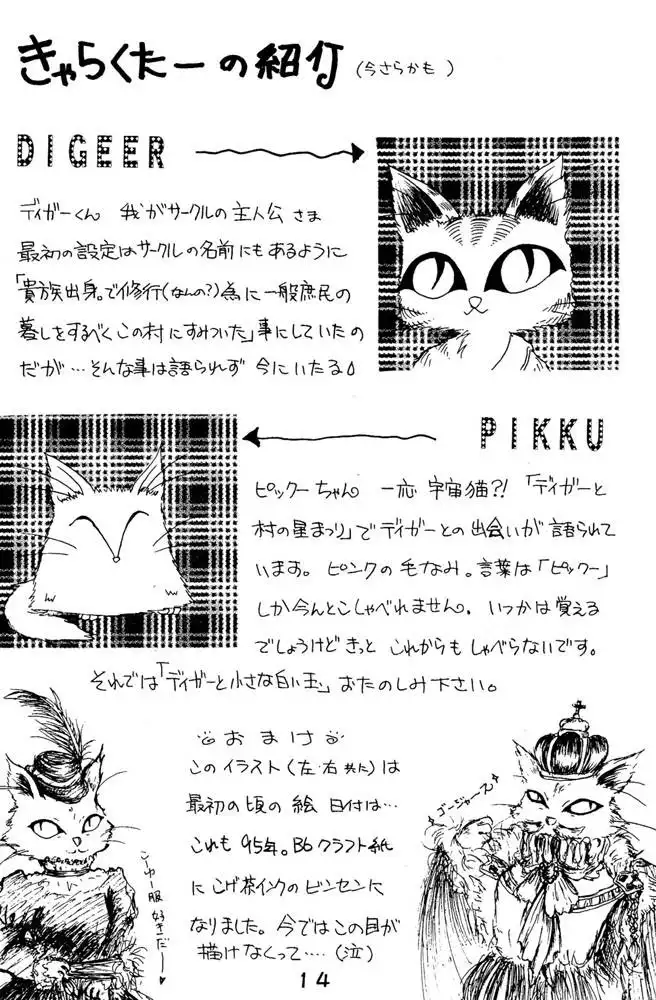 きゃらくたーの紹介(今さらかも)
DIGEER
ディガーくん 我がサークルの主人公さま
最初の設定はサークルの名前にもあるように
「貴族出身。で修行(なんの?)為に一般庶民の
暮しをするべくこの村にすみついた」事にしていたの
だが…そんな事は語られず 今にいたる
PIKKU
ピックーちゃん 一応 宇宙猫?!「ディガーと
村の星まつり」でディガーとの出会いが語られて
います。ピンクの毛なみ。言葉は「ピックー」
しか今んとこしゃべれません。いつかは覚える
でしょうけどきっと これからもしゃべらないです。
それでは「ディガーと小さな白い玉」おたのしみ下さい。
おまけ
このイラスト(左・右共に)は
最初の頃の絵 日付は…
これも95年。B6クラフト紙
にこげ茶インクのビンセンに
なりました。今ではこの目が
描けなくって‥‥(泣)
こーゆー服好きだー
ゴージャース
14